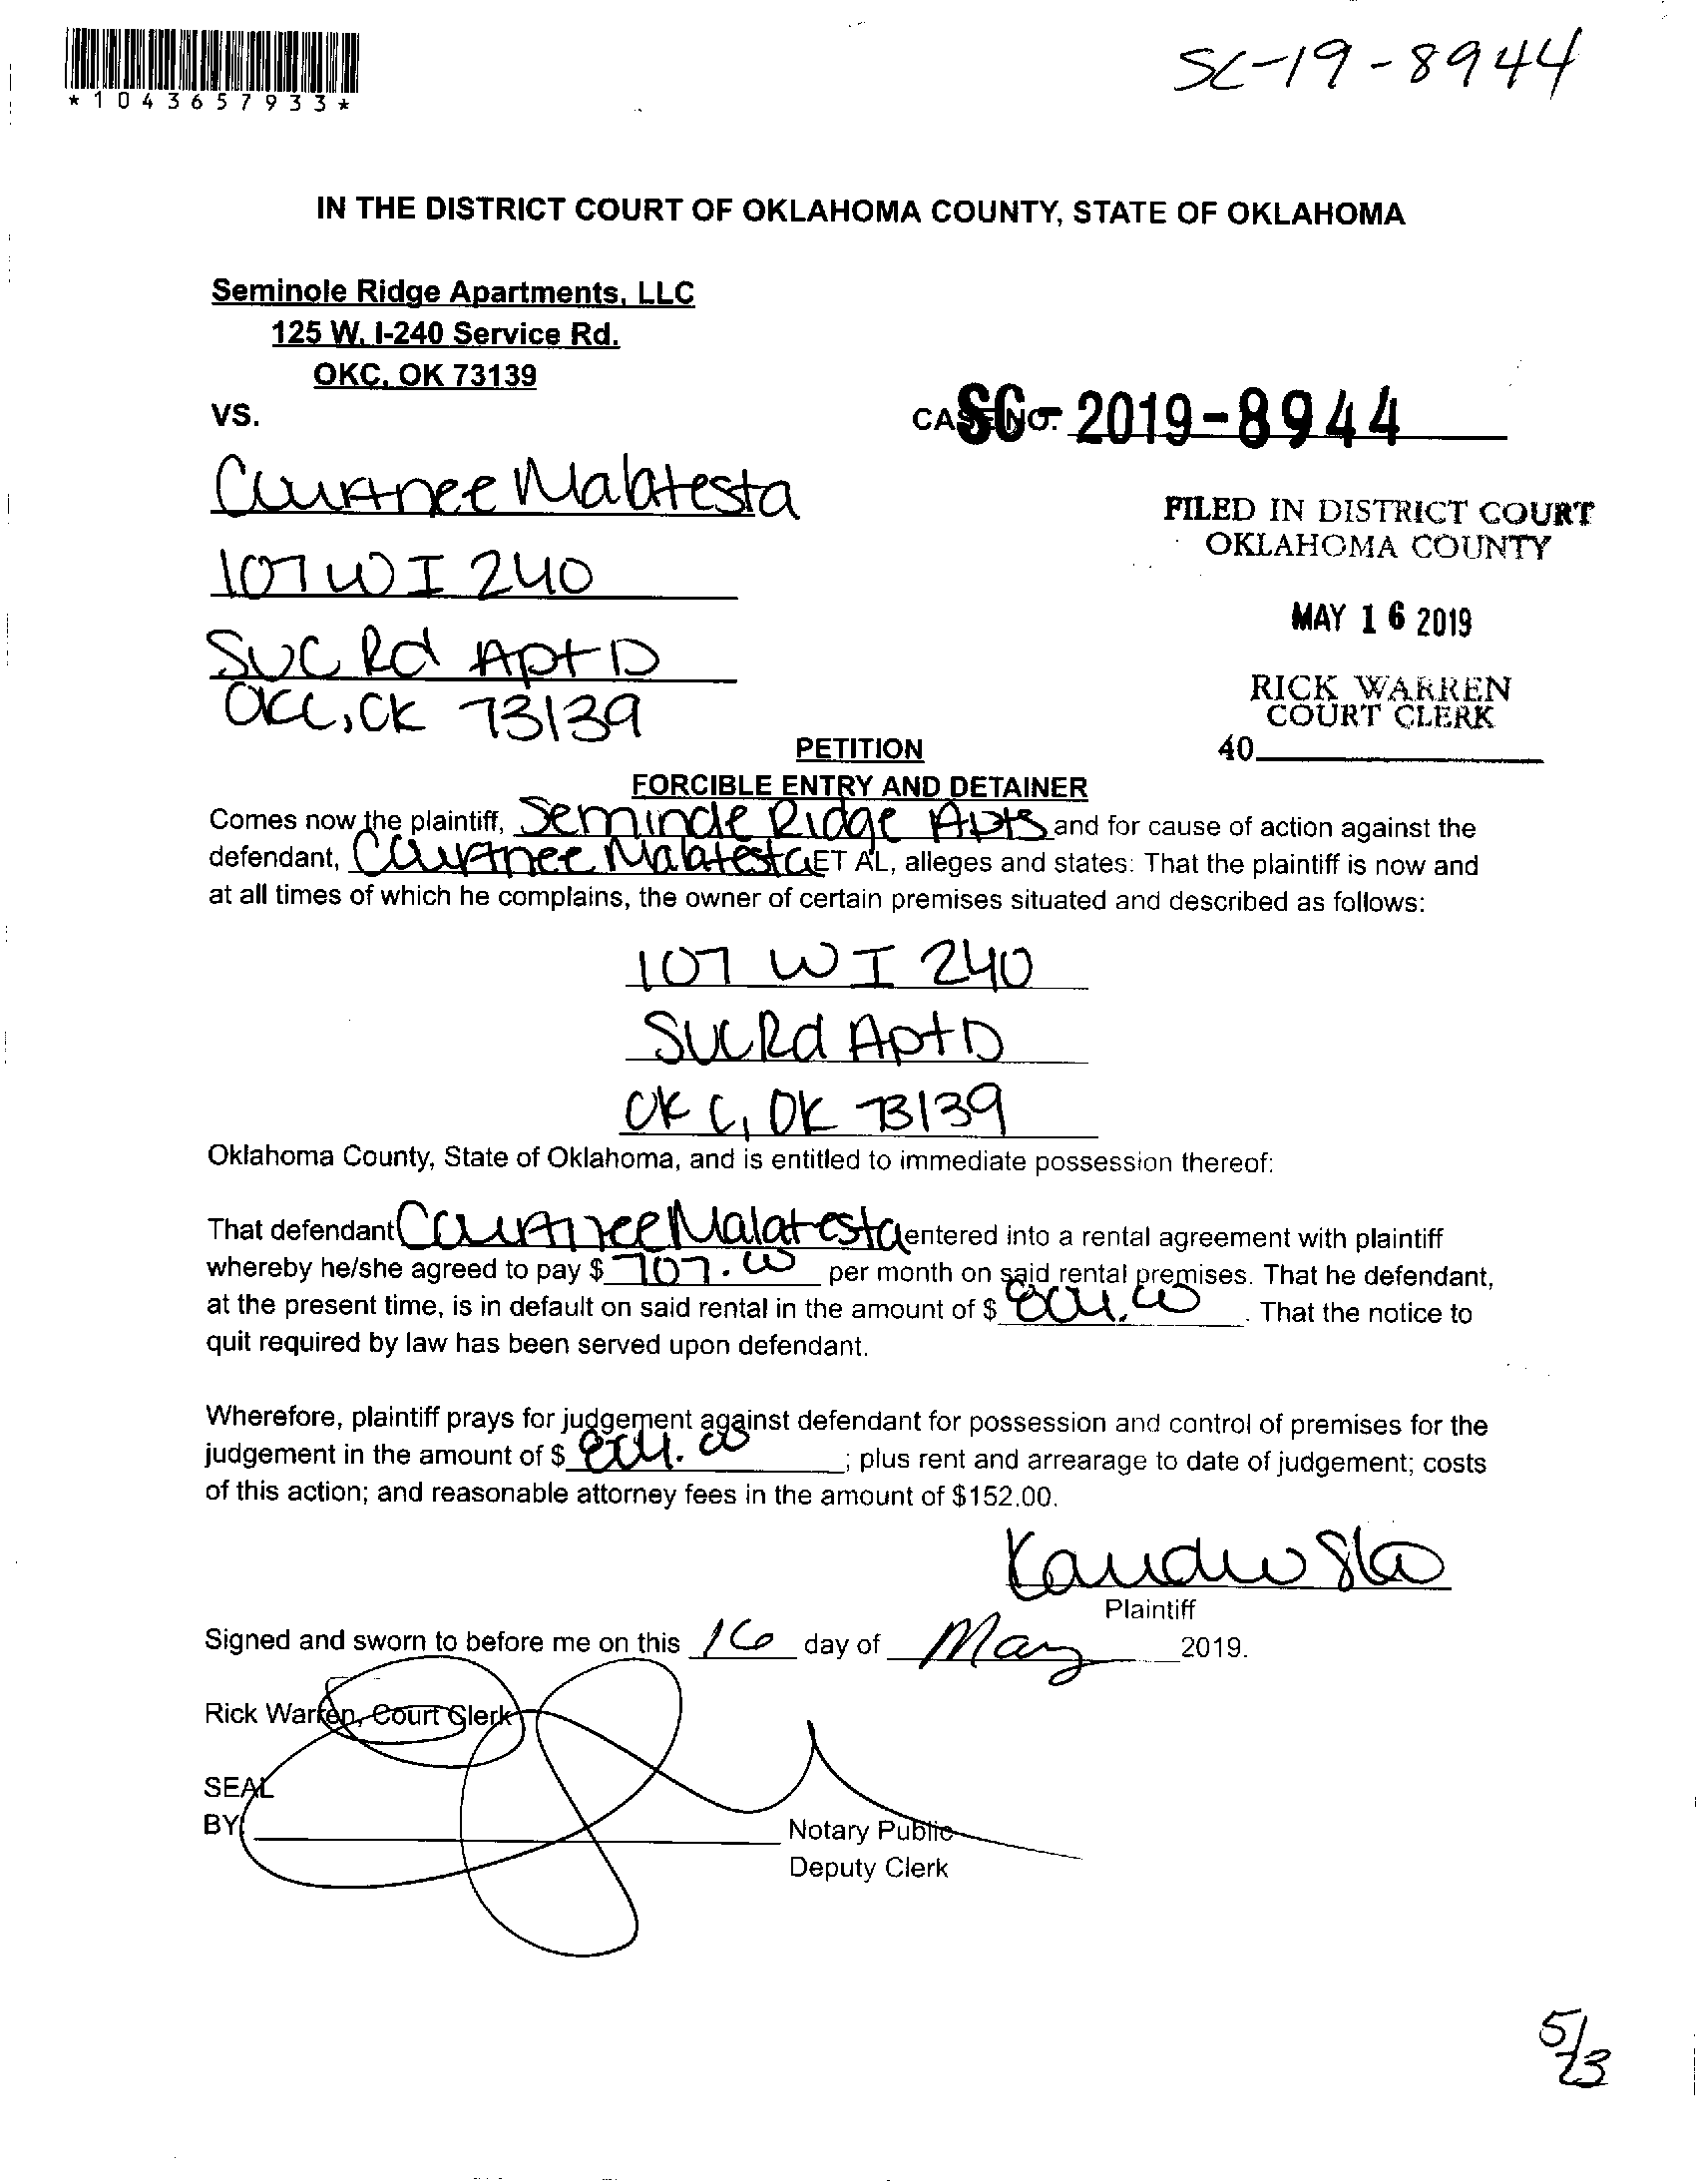 *1043657933*
SC-19-8944
IN THE DISTRICT COURT OF OKLAHOMA COUNTY, STATE OF OKLAHOMA
Seminole Ridge Apartments, LLC
125 W. I-240 Service Rd.
OKC, OK 73139
VS.
CASE NO. SC-2019-8944
Courtnee Malatesta
107 W I 240
SVC Rd Apt D
OKC, OK 73139
FILED IN DISTRICT COURT
OKLAHOMA COUNTY
MAY 16 2019
RICK WARREN
COURT CLERK
40
PETITION
FORCIBLE ENTRY AND DETAINER
Comes now the plaintiff, Seminole Ridge Apts and for cause of action against the
defendant, Courtnee Malatesta ET AL, alleges and states: That the plaintiff is now and
at all times of which he complains, the owner of certain premises situated and described as follows:
107 W I 240
SVC Rd Apt D
OKC, OK 73139
Oklahoma County, State of Oklahoma, and is entitled to immediate possession thereof:
That defendant Courtnee Malatesta entered into a rental agreement with plaintiff
whereby he/she agreed to pay $ 707.00 per month on said rental premises. That he defendant,
at the present time, is in default on said rental in the amount of $ . That the notice to
quit required by law has been served upon defendant.
Wherefore, plaintiff prays for judgement against defendant for possession and control of premises for the
judgement in the amount of $ ; plus rent and arrearage to date of judgement; costs
of this action; and reasonable attorney fees in the amount of $152.00.
Plaintiff
Signed and sworn to before me on this 16 day of May 2019.
Rick Warren, Court Clerk
SEAL
BY
Notary Public
Deputy Clerk
5/23